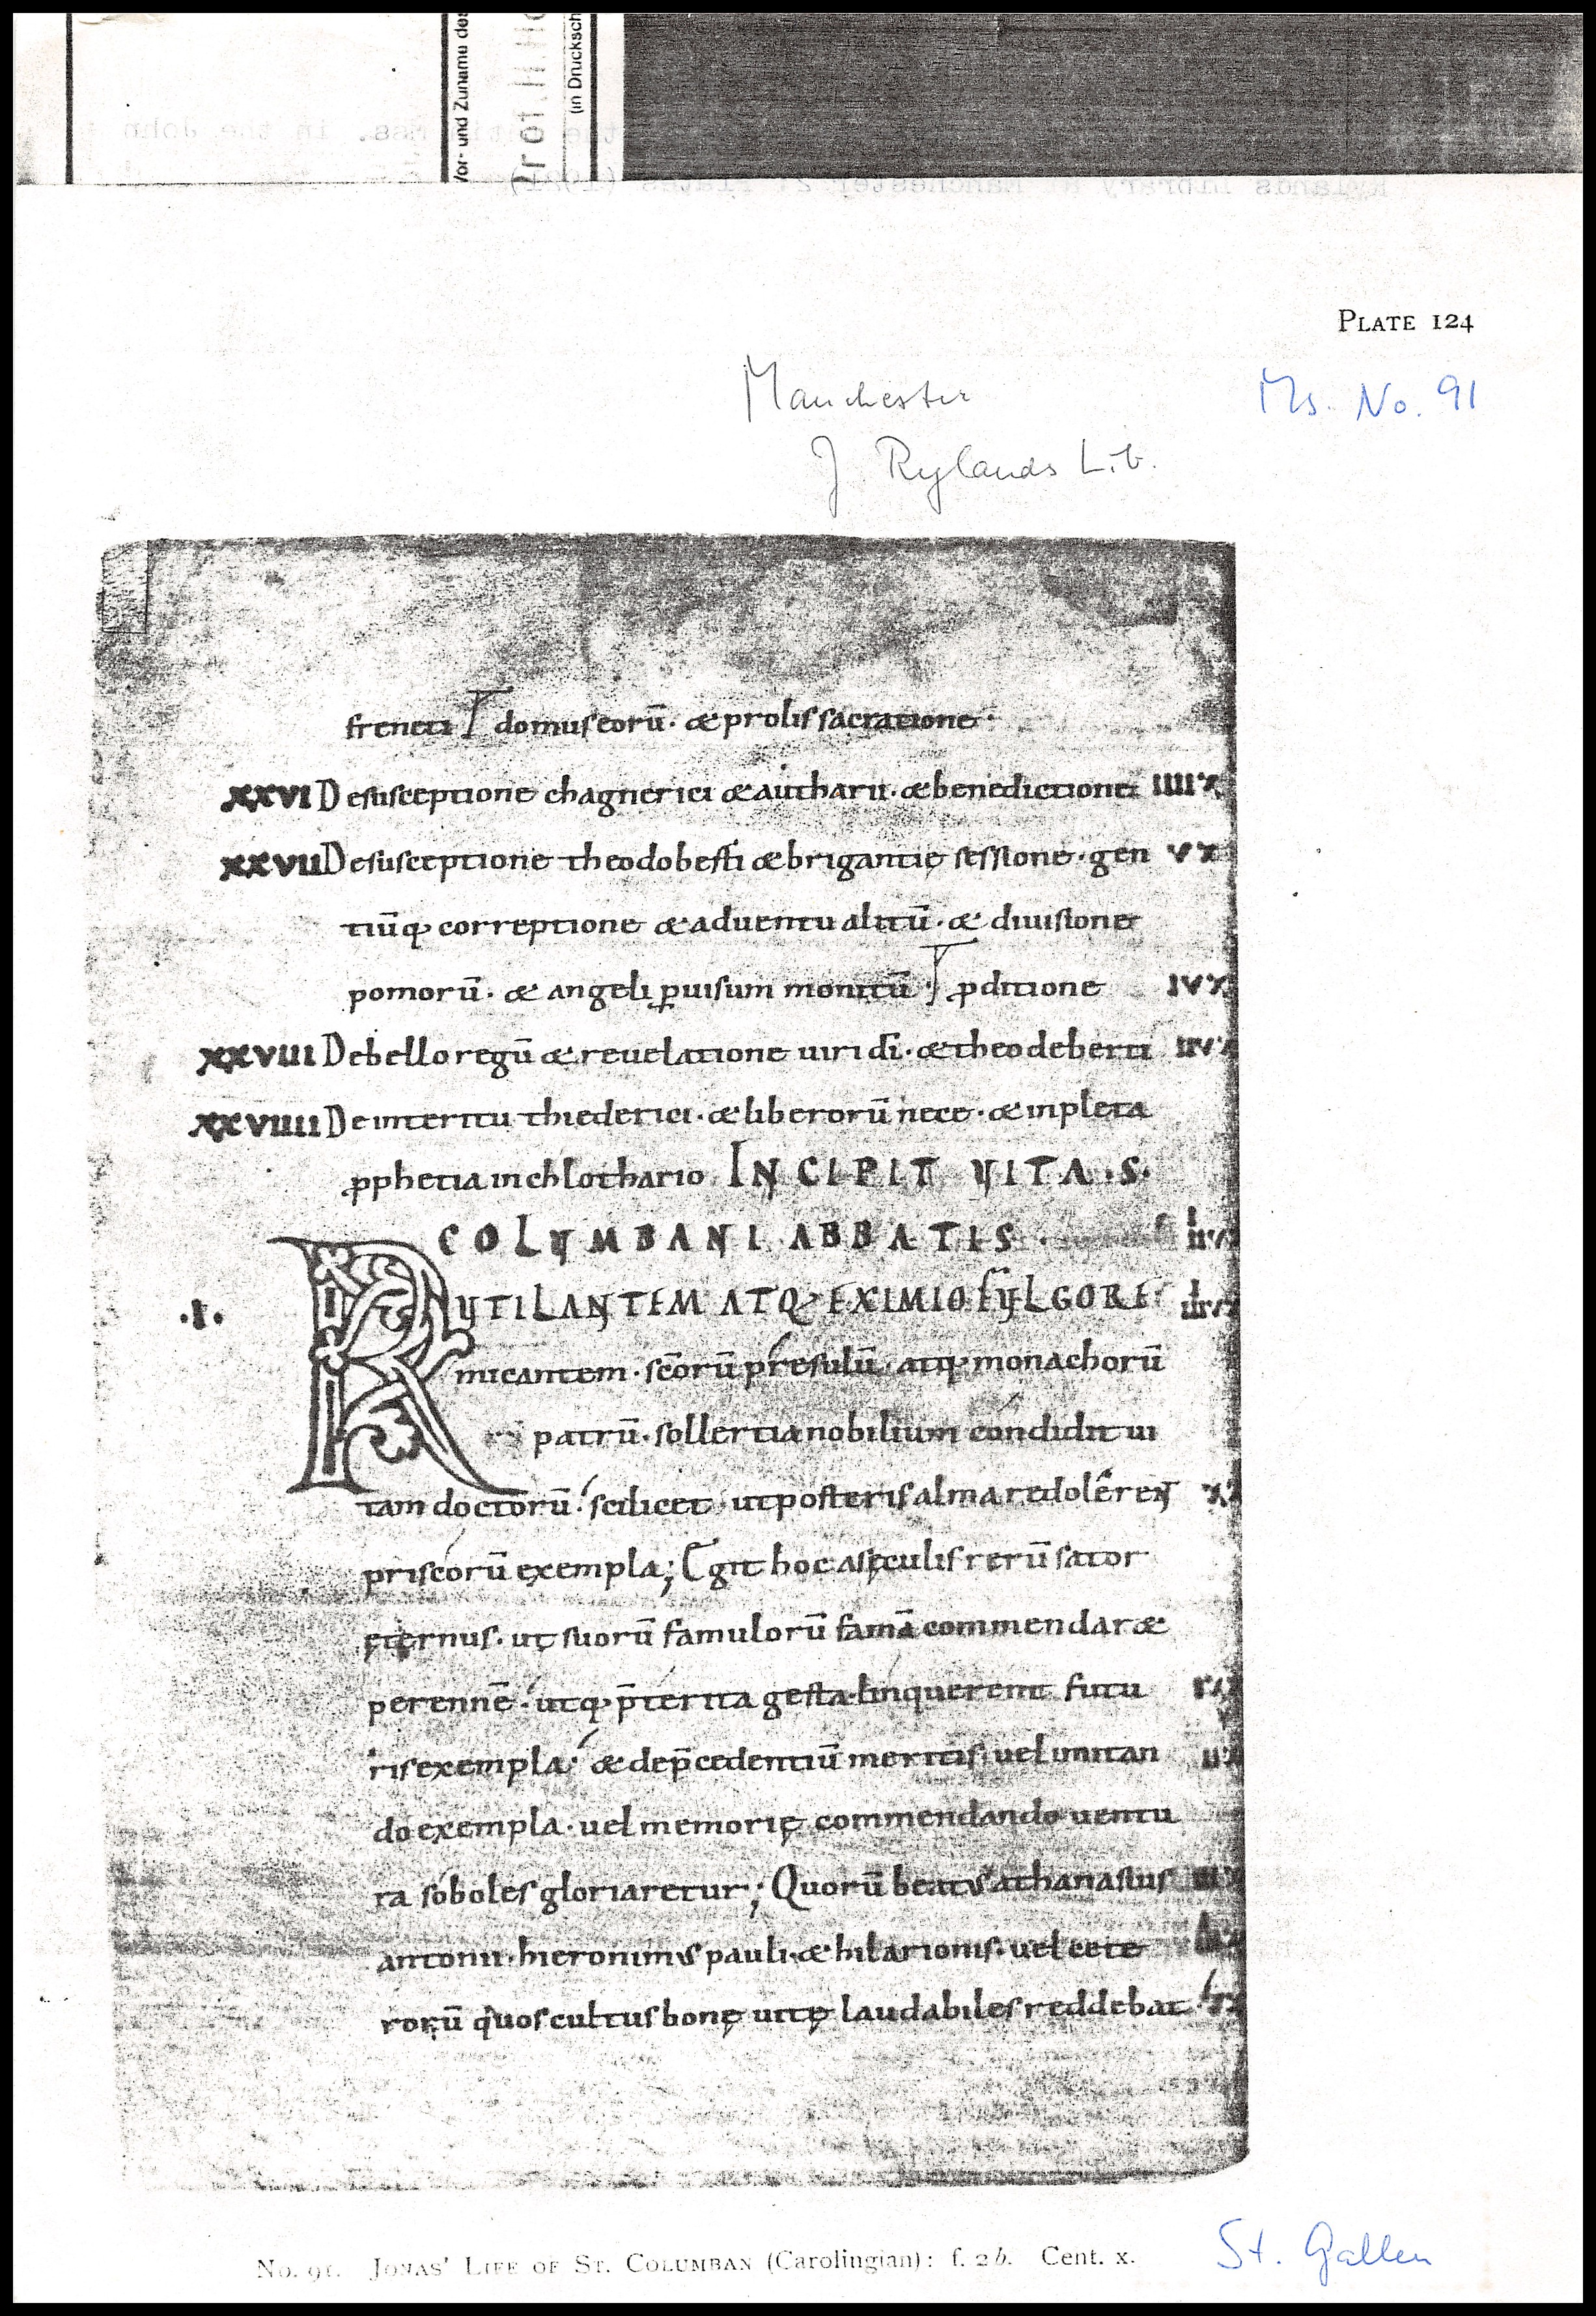 Vor- und Zuname des
Prof. H. Ho
(in Drucksch
PLATE 124
Manchester
Ms. No. 91
J Rylands Lib.
freneti domus eorū· & prolis sacratione·
XXVI De susceptione chagnerici & autharii· & benedictione IIII X
XXVII De susceptione theodoberti & brigantię sessione· gen V X
tiūq· correptione & aduentu alitū· & diuisione
pomorū· & angeli ꝑ uisum monitū ꝓditione IVX
XXVIII De bello regū & reuelatione uiri dī· & theodeberti
XXVIIII De interitu thiederici· & liberorū nece· & inpleta
ꝓphetia in chlothario INCIPIT VITA·S·
COLVMBANI ABBATIS
·I· RVTILANTEM ATQ· EXIMIO FVLGORE
micantem· scōrū presulū· atq· monachorū
patrū· sollertia nobilium condidit ui
tam doctorū· scilicet· ut posteris alma redolerent
priscorū exempla; Egit hoc a sęculis rerū sator
ęternus· ut suorū famulorū famā commendar&
perennē· utq· p̄terita gesta linquerent futu
ris exempla· & de p̄cedentiū meritis· uel imitan
do exempla· uel memorię commendando uentu
ra soboles gloriaretur; Quorū beatus athanasius
antonii· hieronimus pauli· & hilarionis· uel cete
rorū quos cultus bonę uitę laudabiles reddebat
No. 91. JONAS' LIFE OF ST. COLUMBAN (Carolingian): f. 2b. Cent. x.
St. Gallen